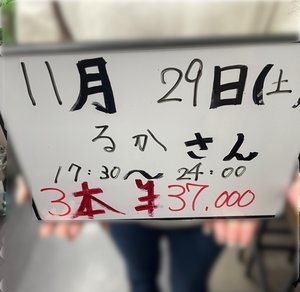 11月 29日(土)
るかさん
17:30〜24:00
3本 ¥37.000